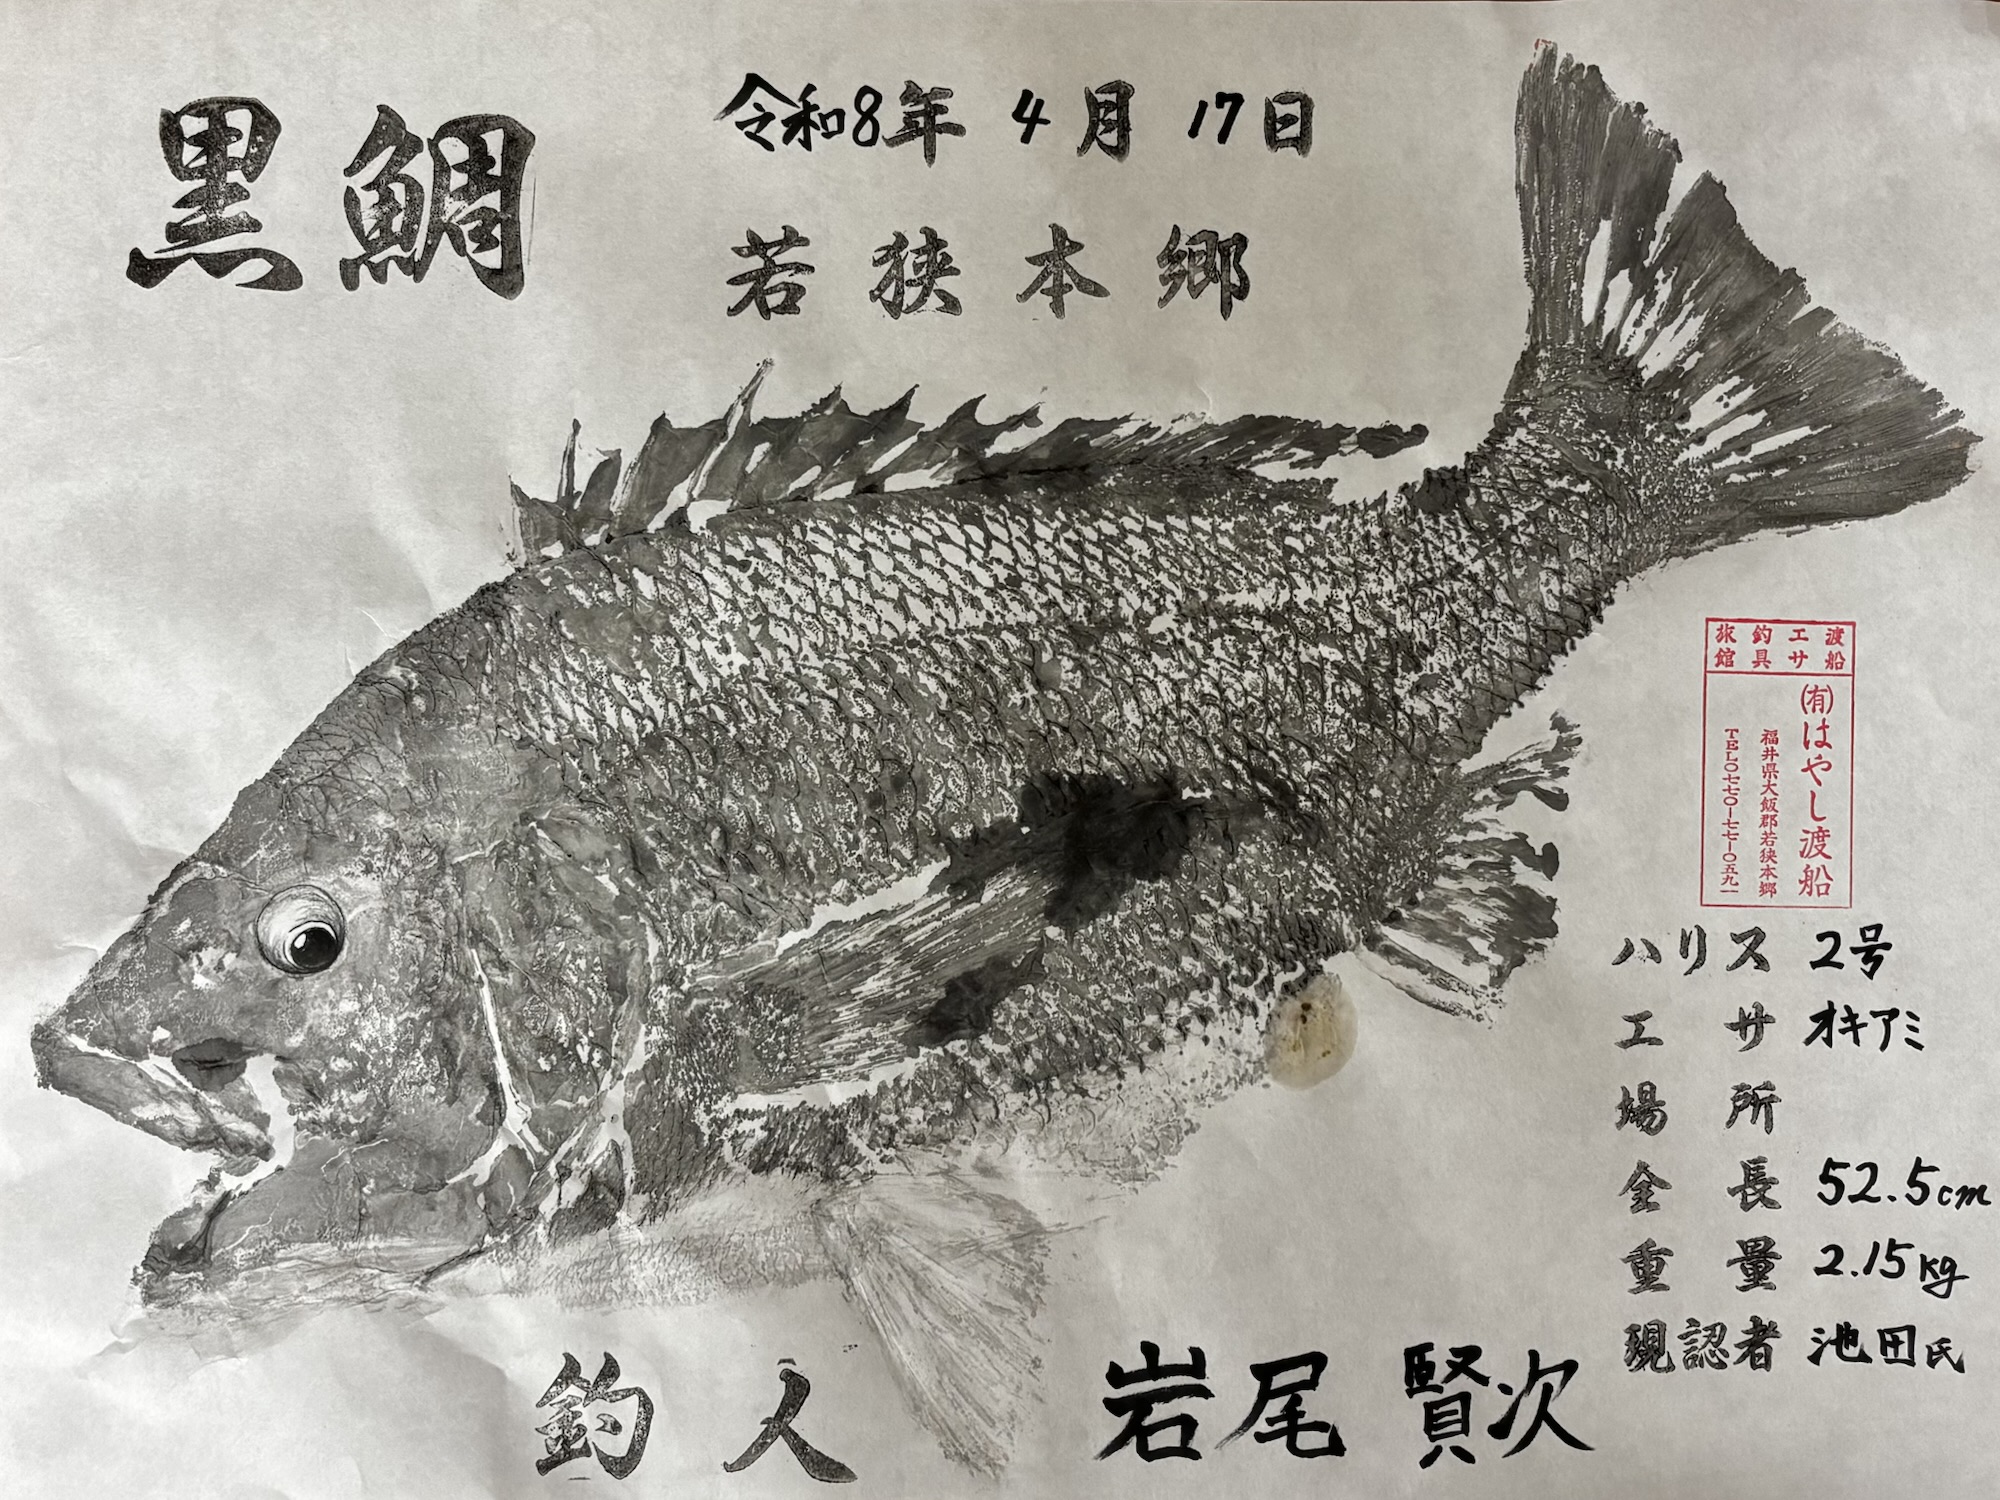 黒鯛
令和8年 4月 17日
若狭本郷
渡船 エサ 釣具 旅館
(有)はやし渡船
福井県大飯郡若狭本郷
TEL〇七七〇-七七-〇五九一
ハリス 2号
エサ オキアミ
場所
全長 52.5cm
重量 2.15kg
現認者 池田氏
釣人 岩尾 賢次